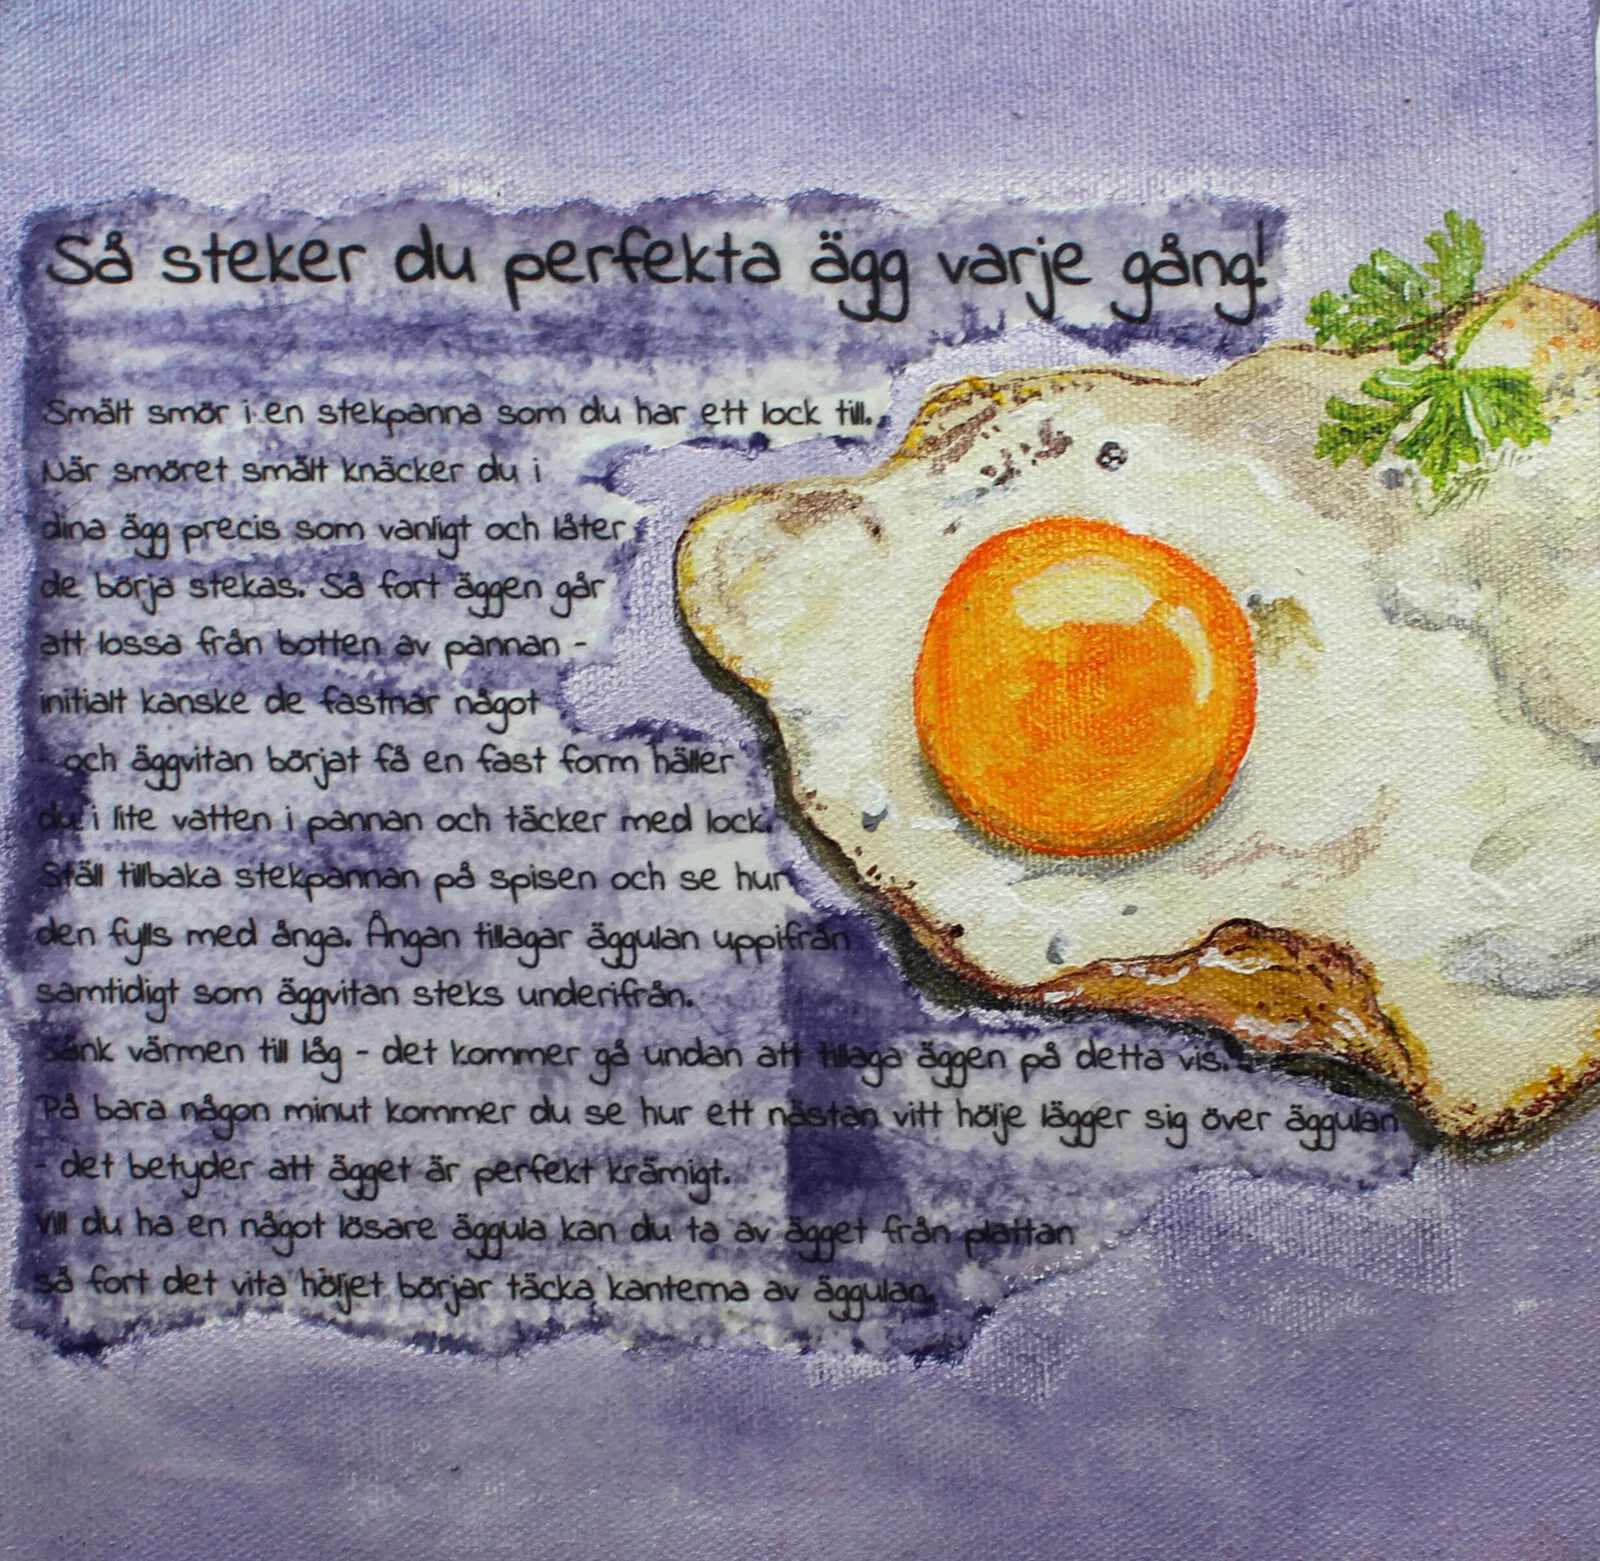 Så steker du perfekta ägg varje gång!
Smält smör i en stekpanna som du har ett lock till.
När smöret smält knäcker du i
dina ägg precis som vanligt och låter
de börja stekas. Så fort äggen går
att lossa från botten av pannan -
initialt kanske de fastnar något
- och äggvitan börjat få en fast form häller
du i lite vatten i pannan och täcker med lock.
Ställ tillbaka stekpannan på spisen och se hur
den fylls med ånga. Ångan tillagar äggulan uppifrån
samtidigt som äggvitan steks underifrån.
Sänk värmen till låg - det kommer gå undan att tillaga äggen på detta vis.
På bara någon minut kommer du se hur ett nästan vitt hölje lägger sig över äggulan
- det betyder att ägget är perfekt krämigt.
Vill du ha en något lösare äggula kan du ta av ägget från plattan
så fort det vita höljet börjar täcka kanterna av äggulan.